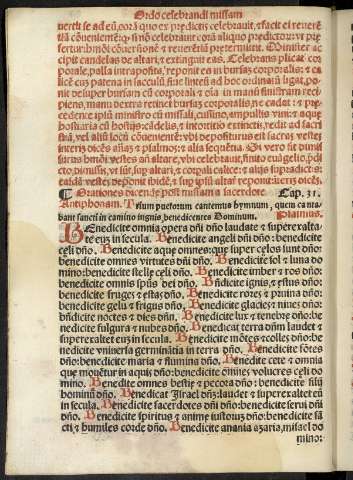 Ordo celebrandi missam
vertit se ad eũ, corã quo ex predictis celebravit, & facit ei reverẽ
tiã cõvenientẽ: q, si nõ celebravit corã aliquo predictorũ: vt pre
fertur: hmõi cõversionẽ & reverẽtiã pretermittit. Minister ac
cipit candelas de altari, & extinguit eas. Celebrans plicat cor
porale, palla intraposita, reponit ea in bursas corporalis: & ca
licẽ cum patena in sacculũ, siue linteũ ad hoc ordinatũ ligat, po
nit desuper bursam cũ corporali: & oĩa in manũ sinistram reci
piens, manu dextra retinet bursaʒ corporalis, ne cadat: & pre
cedente ipsũ ministro cũ missali, cussino, ampullis vini: & aque
hostiaria cũ hostijs: cãdelis, & intortitio extinctis, redit ad sacri
stiã, vel aliũ locũ cõvenientẽ: vbi depositurus est sacras vestes
interis dicẽs añaʒ & psalmos: & alia sequẽtia. Si vero sit dimis
surus hmõi vestes añ altare, vbi celebravit, finito euãgelio, p̃di
cto, dimissis, vt sũt, sup altari, et corporali: et alijs supradictis:
easdẽ vestes deponit ibidẽ, & sup ipsũ altar reponit: interis dicẽs.
¶ Orationes dicende post missam a sacerdote. Cap. 31.
Antiphonam. Trium puerorum cantemus hymnum, quem canta
bant sancti in camino ignis, benedicentes Dominum. Psalmus.
BEnedicite omnia opera dñi dño laudate & superexalta
te euʒ in secula. Benedicite angeli dñi dño: benedicite
celi dño. Benedicite aque omnes: que super celos sunt dño:
benedicite omnes virtutes dñi dño. Benedicite sol & luna do
mino: benedicite stelle celi dño. Benedicite imber & ros dño:
benedicite omnis spũs dei dño. Bñdicite ignis, & estus dño:
benedicite frigꝰ & estas dño. Benedicite rores & pruina dño:
benedicite gelu & frigus dño. Benedicite glacies & nives dño:
bñdicite noctes & dies dño. Benedicite lux & tenebre dño: be
nedicite fulgura & nubes dño. Benedicat terra dñm laudet &
superexaltet euʒ in secula. Benedicite mõtes & colles dño: be
nedicite vniversa germinãtia in terra dño. Benedicite fõtes
dño: benedicite maria & flumina dño. Benedicite cete & omnia
que movẽtur in aquis dño: benedicite omnes volucres celi do
mino. Benedicite omnes bestie & pecora dño: benedicite filij
hominũ dño. Benedicat Israel dñʒ: laudet & superexaltet eũ
in secula. Benedicite sacerdotes dñi dño: benedicite servi dñi
dño. Benedicite spiritus & anime iustorũ dño: benedicite sã
cti & humiles corde dño. Benedicite anania azaria, misael do
mino: